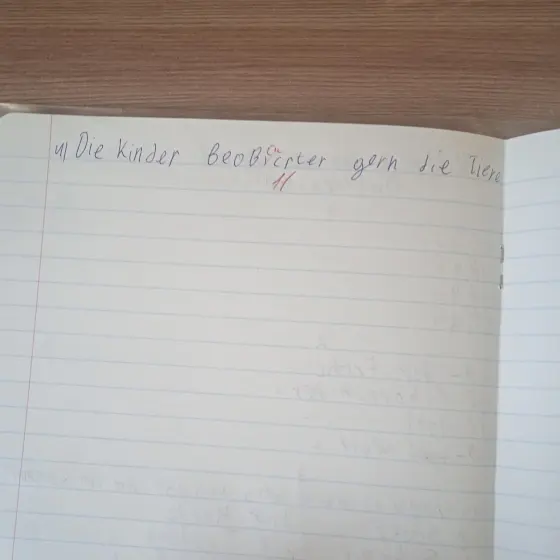 4) Die Kinder beobicrter gern die Tiere